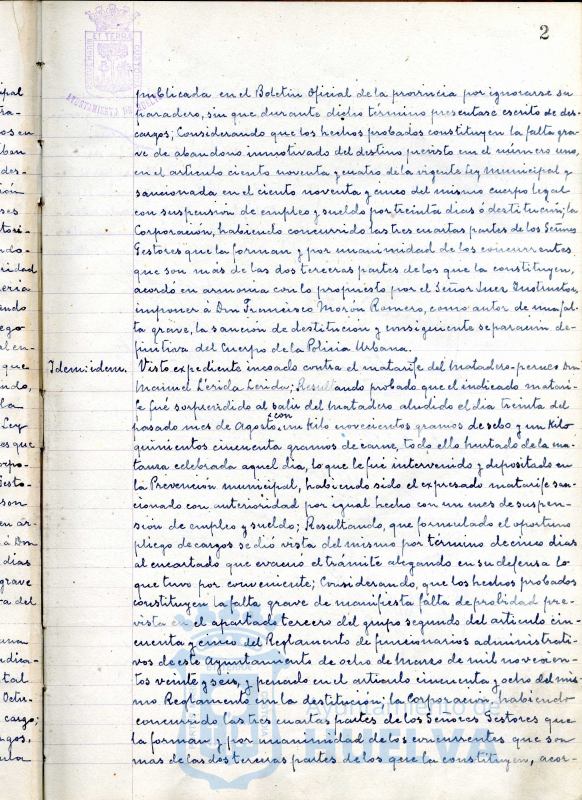 2
publicada en el Boletin Oficial de la provincia por ignorarse su
paradero, sin que durante dicho término presentase escrito de des-
cargos; Considerando que los hechos probados constituyen la falta gra-
ve de abandono inmotivado del destino previsto en el número uno,
en el articulo ciento noventa y cuatro de la vigente Ley municipal y
sancionada en el ciento noventa y cinco del mismo cuerpo legal
con suspensión de empleo y sueldo por treinta dias ó destitución; la
Corporación, habiendo concurrido las tres cuartas partes de los Señores
Gestores que la forman y por unanimidad de los concurrentes
que son más de las dos terceras partes de los que la constituyen,
acordó en armonia con lo propuesto por el Señor Juez Instructor,
imponer á Don Francisco Morón Romero, como autor de una fal-
ta grave, la sanción de destitución y consiguiente separación de-
finitiva del Cuerpo de la Policia Urbana.
Idem: idem.
Visto expediente incoado contra el matarife del Matadero-perneo Don
Manuel Lérida Lerida; Resultando probado que el indicado matari-
fe fué sorprendido al salir del matadero aludido el dia treinta del
pasado mes de Agosto, con un kilo novecientos gramos de sebo y un kilo
quinientos cincuenta gramos de carne, todo ello hurtado de la ma-
tanza celebrada aquel dia, lo que le fué intervenido y depositado en
la Prevención municipal, habiendo sido el expresado matarife san-
cionado con anterioridad por igual hecho con un mes de suspen-
sión de empleo y sueldo; Resultando, que formulado el oportuno
pliego de cargos se dió vista del mismo por término de cinco dias
al encartado que evacuó el trámite alegando en su defensa lo
que tuvo por conveniente; Considerando, que los hechos probados
constituyen la falta grave de manifiesta falta de probidad pre-
vista en el apartado tercero del grupo segundo del articulo cin-
cuenta y cinco del Reglamento de funcionarios administrati-
vos de este Ayuntamiento de ocho de Marzo de mil novecien-
tos veinte y seis, y penado en el articulo cincuenta y ocho del mis-
mo Reglamento con la destitución; la Corporación, habiendo
concurrido las tres cuartas partes de los Señores Gestores que
la forman y por unanimidad de los concurrentes que son
mas de las dos terceras partes de los que la constituyen, acor-
Ayuntamiento de
HUELVA